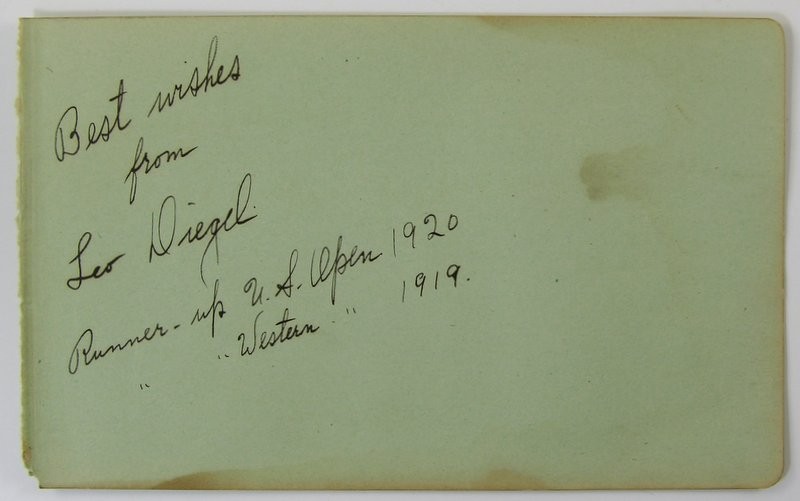 Best wishes
from
Leo Diegel
Runner-up U.S. Open 1920
" " Western " 1919.